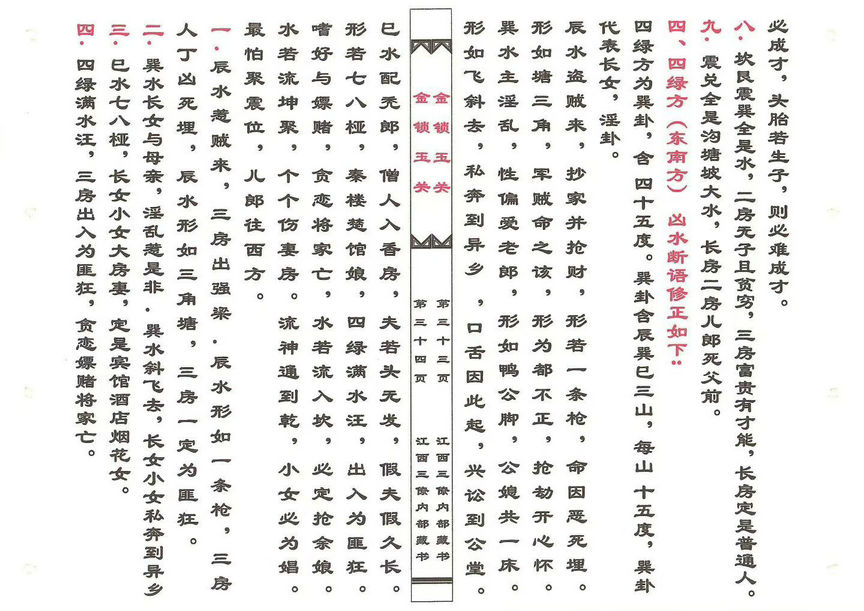 必成才，头胎若生子，则必难成才。
八．坎艮震巽全是水，二房无子且贫穷，三房富贵有才能，长房定是普通人。
九．震兑全是沟塘坡大水，长房二房儿郎死父前。
四、四绿方（东南方）凶水断语修正如下：
四绿方为巽卦，含四十五度。巽卦含辰巽巳三山，每山十五度，巽卦
代表长女，淫卦。
辰水盗贼来，抄家并抢财，形若一条枪，命因恶死埋。
形如塘三角，军贼命之该，形为都不正，抢劫开心怀。
巽水主淫乱，性偏爱老郎，形如鸭公脚，公媳共一床。
形如飞斜去，私奔到异乡，口舌因此起，兴讼到公堂。
金锁玉关 第三十三页 江西三僚内部藏书
金锁玉关 第三十四页 江西三僚内部藏书
巳水配秃郎，僧人入香房，夫若头无发，假夫假久长。
形若七八桠，秦楼楚馆娘，四绿满水汪，出入为匪狂。
嗜好与嫖赌，贪恋将家亡，水若流入坎，必定抢余娘。
水若流坤聚，个个伤妻房。流神通到乾，小女必为娼。
最怕聚震位，儿郎往西方。
一．辰水惹贼来，三房出强梁．辰水形如一条枪，三房
人丁凶死埋，辰水形如三角塘，三房一定为匪狂。
二．巽水长女与母亲，淫乱惹是非．巽水斜飞去，长女小女私奔到异乡
三．巳水七八桠，长女小女大房妻，定是宾馆酒店烟花女。
四．四绿满水汪，三房出入为匪狂，贪恋嫖赌将家亡。